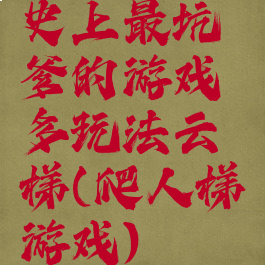 史上最坑
爹的游戏
多玩法云
梯(爬人梯
游戏)